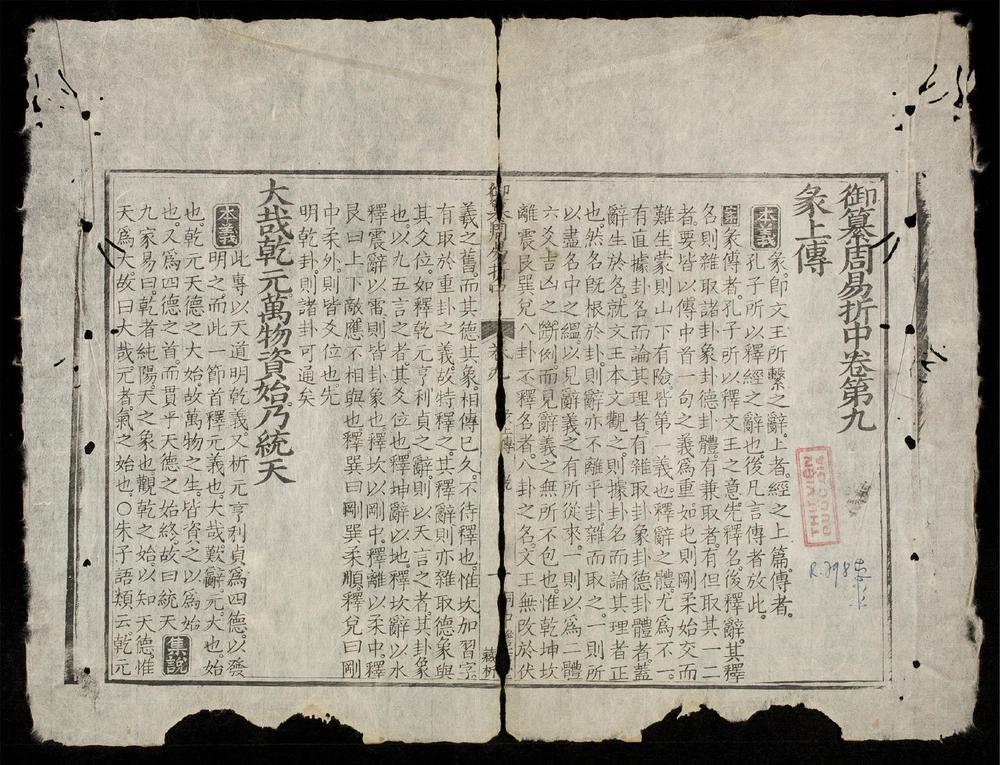 御纂周易折中卷第九
彖上傳
本義 彖即文王所繫之辭上者經之上篇傳者
孔子所以釋經之辭也後凡言傳者放此
案 彖傳者孔子所以釋文王之意先釋名後釋辭其釋
名則雜取諸卦象卦德卦體有兼取者有但取其一二
者要皆以傳中首一句之義為重如屯則剛柔始交而
難生蒙則山下有險皆第一義也釋辭之體尤為不一
有直據卦名而論其理者有雜取卦象卦德卦體者蓋
辭生於名就文王本文觀之則據卦名而論其理者正
也然名既根於卦則辭亦不離乎卦雜而取之一則所
以盡名中之縕以見辭義之有所從來一則以為二體
六爻吉凶之斷例而見辭義之無所不包也惟乾坤坎
離震艮巽兌八卦不釋名者八卦之名文王無改於伏
御纂周易折中 卷九 彖上傳 乾 一
義之舊而其德其象相傳已久不待釋也惟坎加習字
有取於重卦之義故特釋之其釋辭則亦雜取德象與
其爻位如釋乾元亨利貞之辭則以天言之者其卦象
也以九五言之者其爻位也釋坤辭以地釋坎辭以水
釋震辭以雷則皆卦象也釋坎以剛中釋離以柔中釋
艮曰上下敵應不相與也釋巽曰剛巽柔順釋兌曰剛
中柔外則皆爻位也先
明乾卦則諸卦可通矣
大哉乾元萬物資始乃統天
本義 此專以天道明乾義又析元亨利貞為四德以發
明之而此一節首釋元義也大哉歎辭元大也始
也乾元天德之大始故萬物之生皆資之以為始
也又為四德之首而貫乎天德之始終故曰統天 集說
九家易曰乾者純陽天之象也觀乾之始以知天德惟
天為大故曰大哉元者氣之始也○朱子語類云乾元
R.798